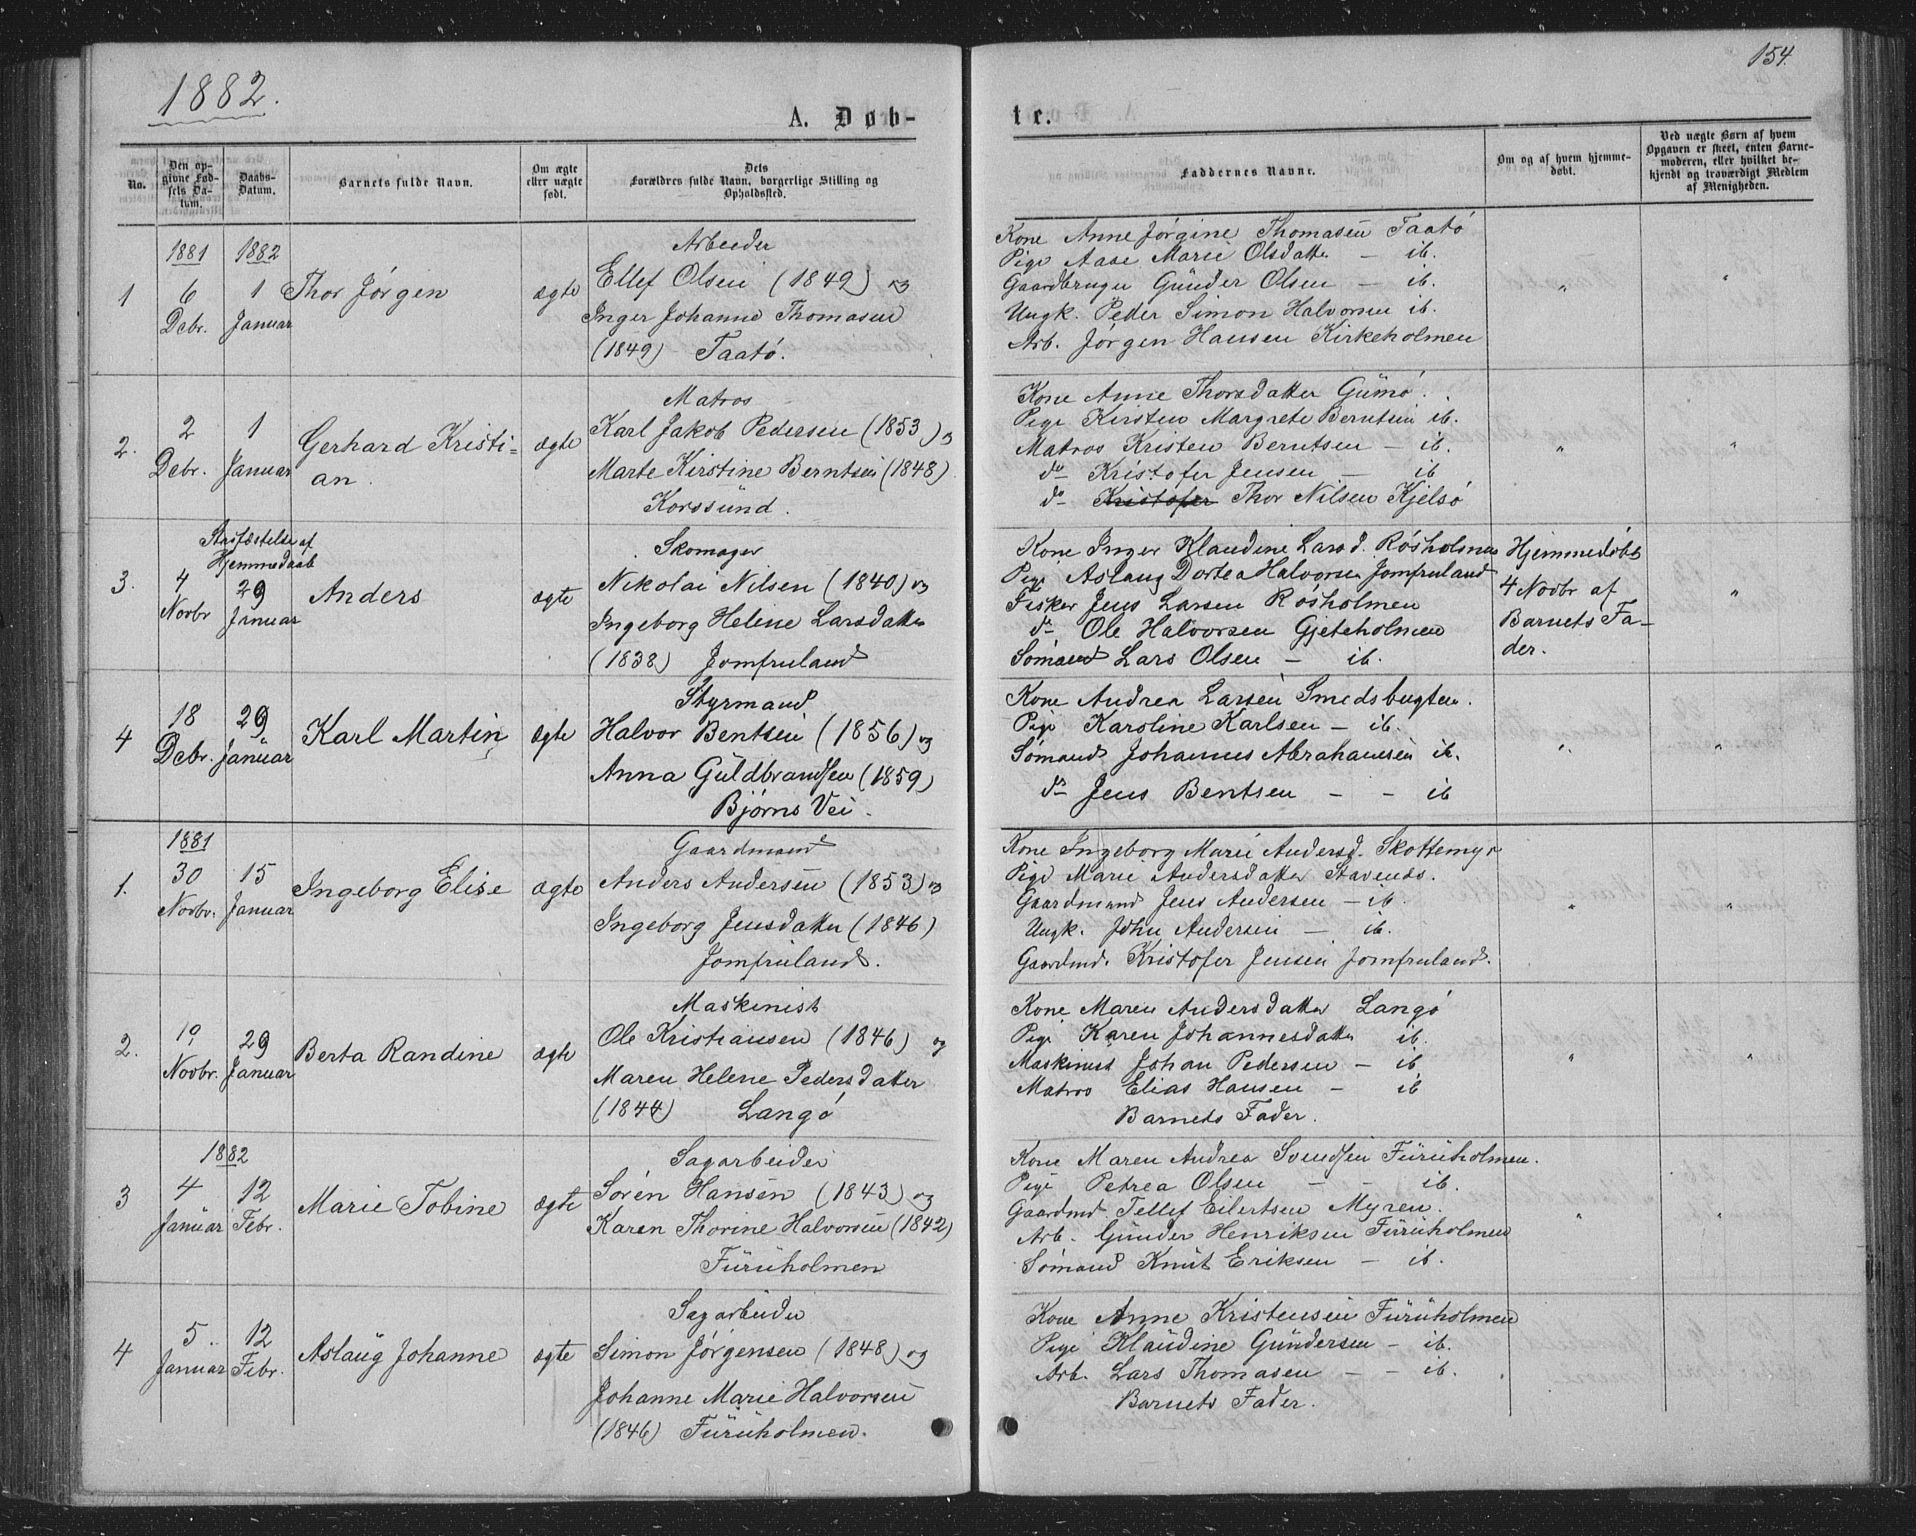 1882.
154.
A. Døb-
te.
No.
Den op-
givne Fød-
sels Da-
tum.
Daabs-
Datum.
Barnets fulde Navn.
Om ægte
eller uægte
født.
Dets
Forældres fulde Navn, borgerlige Stilling og
Opholdssted.
Faddernes Navne.
Om og af hvem hjemme-
døbt.
Ved uægte Børn af hvem
Opgaven er skeet, enten Barne-
moderen, eller hvilket be-
kjendt og troværdigt Medlem
af Menigheden.
1
1881
6
Debr.
1882
1
Januar
Thor Jørgen
ægte
Arbeider
Ellef Olsen (1849) og
Inger Johanne Thomasen
(1849) Taatø.
Kone Anne Jørgine Thomasen Taatø
Pige Aase Marie Olsdatter — ib.
Gaardbruger Gunder Olsen — ib.
Ungk. Peder Simon Halvorsen ib.
Arb. Jørgen Hansen Kirkeholmen
"
"
2.
2
Debr.
1
Januar
Gerhard Kristi-
an.
ægte
Matros
Karl Jakob Pedersen (1853) og
Marte Kirstine Berntsen (1848)
Korssund.
Kone Anne Thorsdatter Gumø.
Pige Kirsten Margrete Berntsen ib.
Matros Kristen Berntsen — ib.
do Kristofer Jensen — ib
do Kristofer Thor Nilsen Kjelsø
"
"
3.
Stadfæstelse af
Hjemmedaab
4
Novbr
29
Januar
Anders
ægte
Skomager
Nikolai Nilsen (1840) og
Ingeborg Helene Larsdatter
(1838) Jomfruland
Kone Inger Klaudine Larsd. Røsholmen
Pige Aslaug Dortea Halvorsen Jomfruland
Fisker Jens Larsen Røsholmen
do Ole Halvorsen Gjeteholmen
Sømand Lars Olsen — ib.
Hjemmedøbt
4 Novbr af
Barnets Fa-
der.
"
4
18
Debr.
29
Januar
Karl Martin
ægte
Styrmand
Halvor Bentsen (1856) og
Anna Guldbrandsen (1859)
Bjørns Vei.
Kone Andrea Larsen Smedsbugten.
Pige Karoline Karlsen — ib.
Sømand Johannes Abrahamsen ib.
do Jens Bentsen — — ib
"
"
1.
1881
30
Novbr.
15
Januar
Ingeborg Elise
ægte
Gaardmand
Anders Andersen (1853) og
Ingeborg Jensdatter (1846)
Jomfruland.
Kone Ingeborg Marie Andersd. Skottemyr
Pige Marie Andersdatter Stavenæs.
Gaardmand Jens Andersen — ib.
Ungk. John Andersen — ib.
Gaardmd. Kristofer Jensen Jomfruland.
"
"
2.
19
Novbr.
29
Januar
Berta Randine
ægte
Maskinist
Ole Kristiansen (1846) og
Maren Helene Pedersdatter
(1844) Langø
Kone Maren Andersdatter Langø
Pige Karen Johannesdatter ib.
Maskinist Johan Pedersen — ib
Matros Elias Hansen — ib
Barnets Fader.
"
"
3
1882
4
Januar
12
Febr.
Marie Tobine
ægte
Sagarbeider
Søren Hansen (1843) og
Karen Thorine Halvorsen (1842)
Furuholmen
Kone Maren Andrea Svendsen Furuholmen.
Pige Petrea Olsen — — ib.
Gaardmd. Tellef Eilertsen Myren.
Arb. Gunder Henriksen Furuholmen
Sømand Knut Eriksen — ib.
"
"
4
5.
Januar
12
Febr.
Aslaug Johanne
ægte
Sagarbeider
Simon Jørgensen (1848) og
Johanne Marie Halvorsen
(1846) Furuholmen.
Kone Anne Kristensen Furuholmen
Pige Klaudine Gundersen — ib.
Arb. Lars Thomasen — — ib.
Barnets Fader.